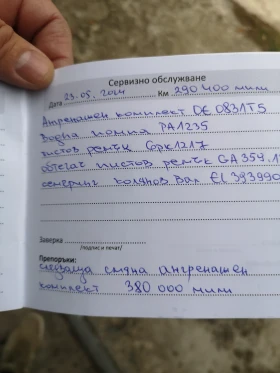 Сервизно обслужване
Дата 23.05.2024 Км 290 400 мили
Ангренашен комплект DE 0831T5
Водна помпа PA1235
пистов ремък 6pk1217
обтегач пистов ремък GA359.1
семеринг колянов вал EL 393990
Заверка
/подпис и печат/
Препоръки:
следваща смяна ангренашен
комплект 380 000 мили